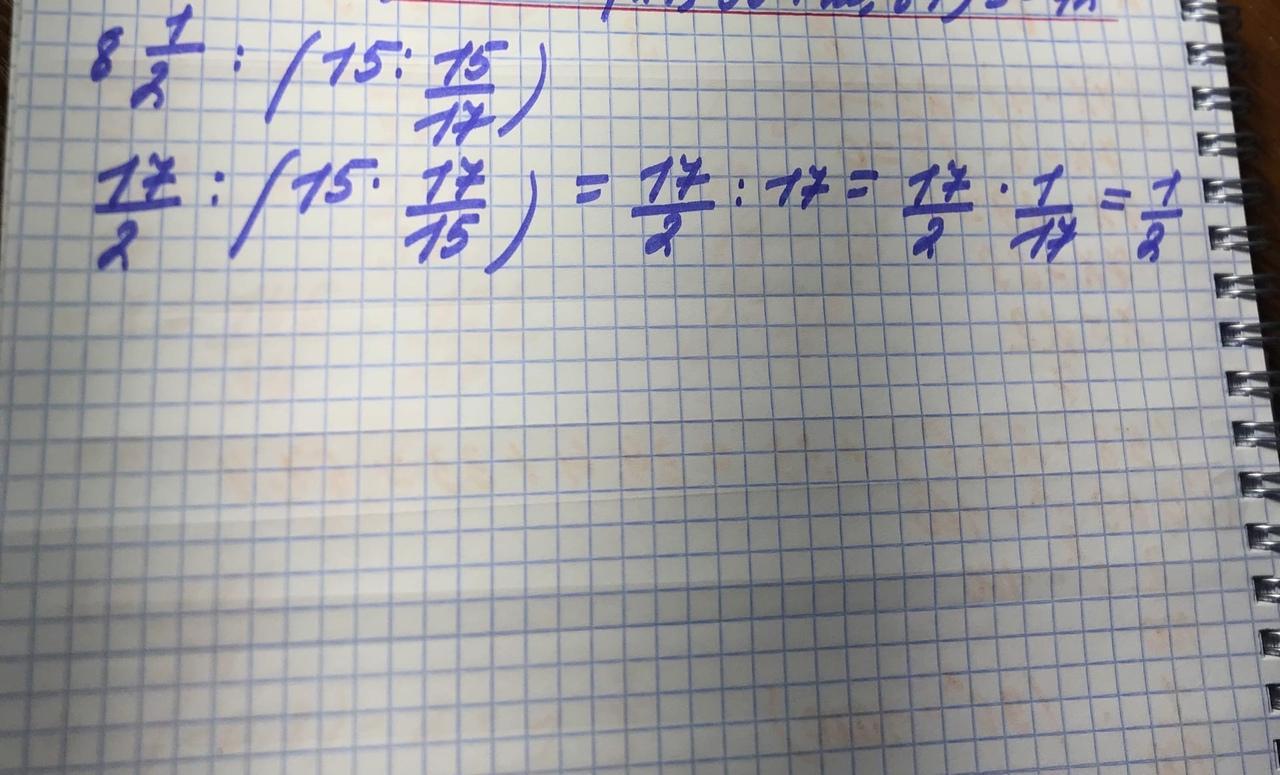 8 1/2 : (15 : 15/17)
17/2 : (15 · 17/15) = 17/2 : 17 = 17/2 · 1/17 = 1/2